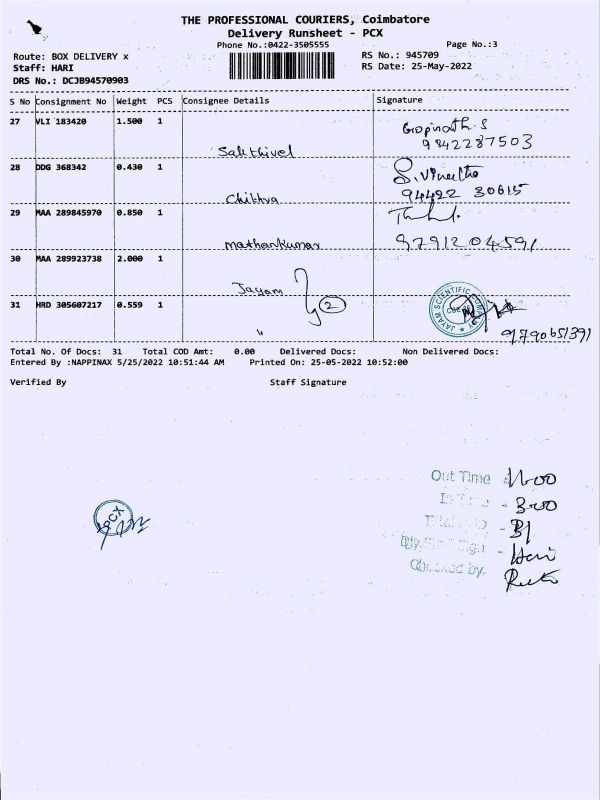 THE PROFESSIONAL COURIERS, Coimbatore
Delivery Runsheet - PCX
Phone No.:0422-3505555
Page No.:3
Route: BOX DELIVERY x
RS No.: 945709
Staff: HARI
RS Date: 25-May-2022
DRS No.: DCJB94570903
S No Consignment No Weight PCS Consignee Details Signature
27 VLI 183420 1.500 1
Gopinath.S
9842287503
Sakthivel
28 DDG 368342 0.430 1
S.Vineetha
94422 30615
Chithra
29 MAA 289845970 0.850 1
9791204591
Mathankumar
30 MAA 289923738 2.000 1
Jayam
2
JAYAM SCIENTIFIC COMPANY
31 HRD 305607217 0.559 1
"
9790651391
Total No. Of Docs: 31 Total COD Amt: 0.00 Delivered Docs: Non Delivered Docs:
Entered By :NAPPINAX 5/25/2022 10:51:44 AM Printed On: 25-05-2022 10:52:00
Verified By Staff Signature
Out Time 11-00
- 3-00
PCX
- 31
Sign - Hari
Checked by.